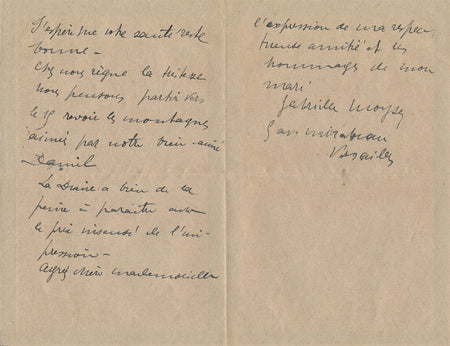 J'espère que votre santé reste
bonne –
Chez nous règne la tristesse
nous pensons partir vers
le 15 revoir les montagnes
aimées par notre bien-aimé
La Diane a bien de la
peine à paraître avec
le prix insensé de l'im-
pression –
Agréez chère mademoiselle
l'expression de ma respec
tueuse amitié et les
hommages de mon
mari
Gabrielle
Versailles